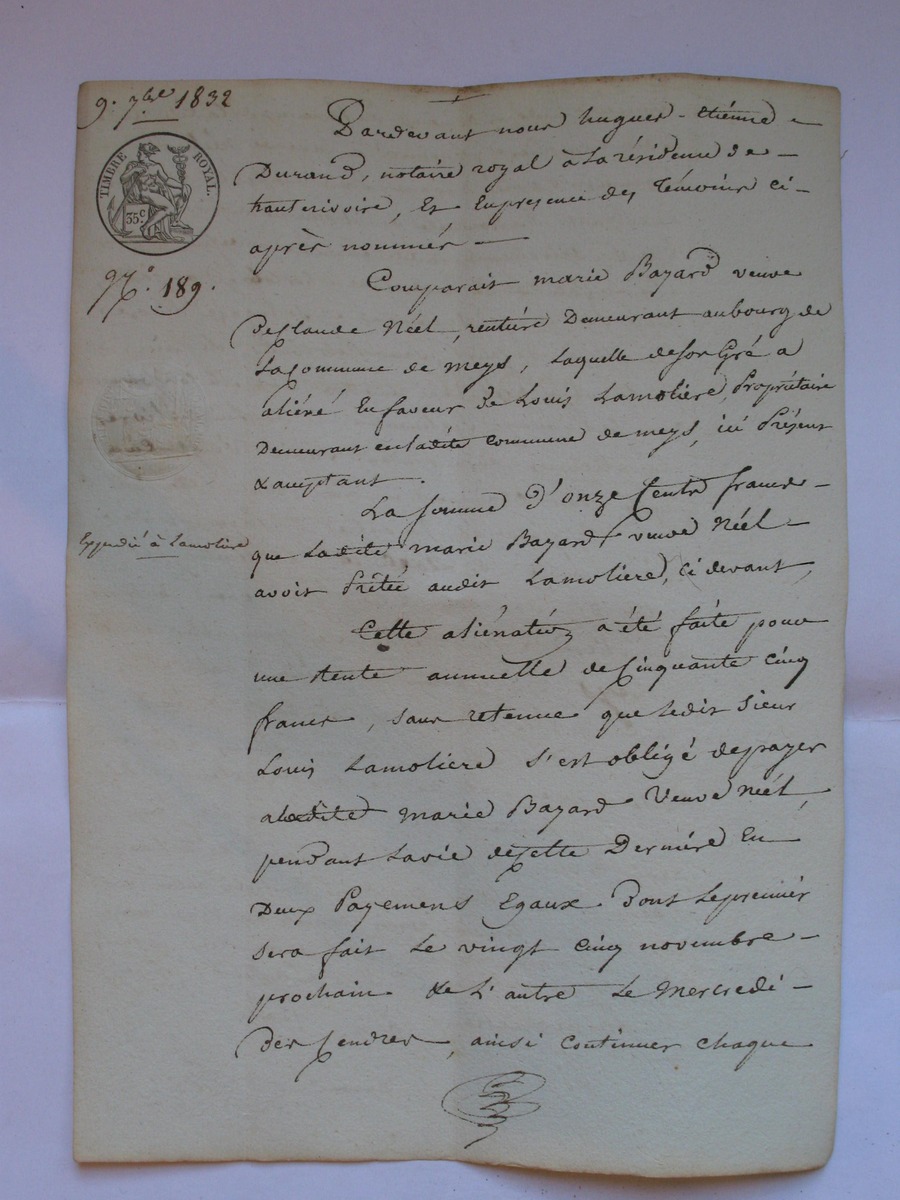 9. 7bre 1832
TIMBRE ROYAL.
35 c.
N.° 189.
Expédié à Lamolière
Pardevant nous hugues - étiénne -
Durand, notaire royal à la résidence de -
hauterivoire, et en présence des témoins ci-
après nommés —
Comparait marie Bazard veuve
de Claude Néél, rentière Demeurant au bourg de
la Commune de meys, laquelle de son Gré a
aliéné En faveur de Louis Lamolière, Propriétaire
Demeurant en ladite Commune de meys, ici Présent
& acceptant.
La somme D'onze Cents francs -
que Ladite marie Bazard veuve Néél -
avoit Prêtée audit Lamoliere, ci devant,
Cette aliénation a été faite pour
une rente annuelle de Cinquante cinq
francs, sans retenue que Ledit Sieur
Louis Lamoliere s'est obligé de payer
a ladite marie Bazard Veuve Néél,
pendant la vie de Cette Derniére En
Deux Payemens Egaux. Dont le premier
sera fait le vingt cinq novembre -
prochain & L'autre Le Mercredi -
des Cendres, ainsi Continuer chaque